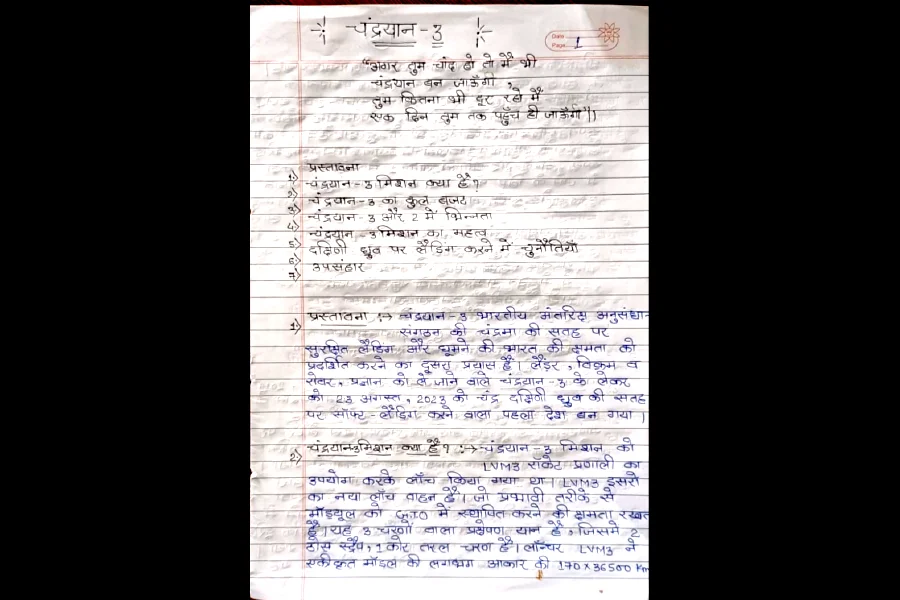 चंद्रयान - 3
Date
Page 1
"अगर तुम चांद हो तो मैं भी
चंद्रयान बन जाऊँगी ,
तुम कितना भी दूर रहो मैं
एक दिन तुम तक पहुँच ही जाऊँगी"।
1) प्रस्तावना
2) चंद्रयान - 3 मिशन क्या है ?
3) चंद्रयान - 3 का कुल बजट
4) चंद्रयान - 3 और 2 में भिन्नता
5) चंद्रयान - 3 मिशन का महत्व
6) दक्षिणी ध्रुव पर लैंडिंग करने में चुनौतियाँ
7) उपसंहार
1) प्रस्तावना :→ चंद्रयान - 3 भारतीय अंतरिक्ष अनुसंधान
संगठन की चंद्रमा की सतह पर
सुरक्षित लैंडिंग और घूमने की भारत की क्षमता को
प्रदर्शित करने का दूसरा प्रयास है। लैंडर , विक्रम व
रोवर , प्रज्ञान को ले जाने वाले चंद्रयान - 3 के लेकर
को 23 अगस्त , 2023 को चंद्र दक्षिणी ध्रुव की सतह
पर सॉफ्ट - लैंडिंग करने वाला पहला देश बन गया ।
2) चंद्रयान-3 मिशन क्या है ? :→ चंद्रयान - 3 मिशन को
LVM3 रॉकेट प्रणाली का
उपयोग करके लाँच किया गया था । LVM3 इसरो
का नया लाँच वाहन है । जो प्रभावी तरीके से
मॉड्यूल को GTO में स्थापित करने की क्षमता रखता
है । यह 3 चरणों वाला प्रक्षेपण यान है , जिसमें 2
ठोस स्ट्रैप , 1 कोर तरल चरण है । लॉन्चर LVM3 ने
एकीकृत मॉडल की लगभग आकार की 170 x 36500 Km